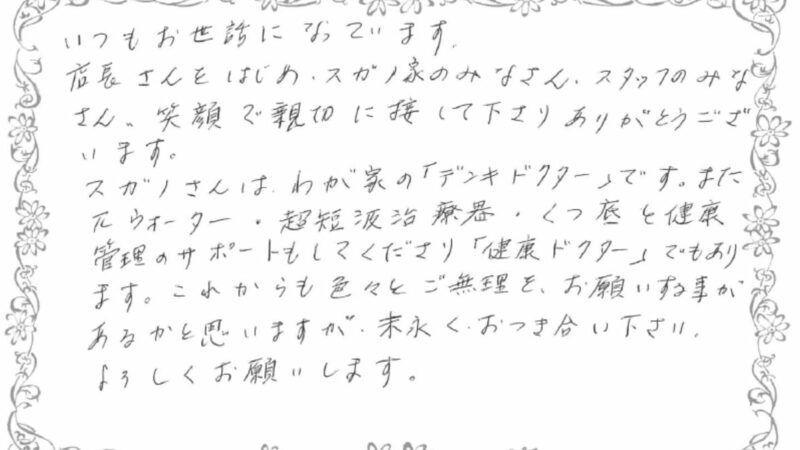 いつもお世話になっています.
店長さんをはじめ、スガノ家のみなさん、スタッフのみな
さん、笑顔で親切に接して下さりありがとうござ
います。
スガノさんは、わが家の「デンキドクター」です。また
πウォーター・超短波治療器・くつ底と健康
管理のサポートもしてくださり「健康ドクター」でもあり
ます。これからも色々とご無理を、お願いする事が
あるかと思いますが、末永く、おつき合い下さい.
よろしくお願いします。